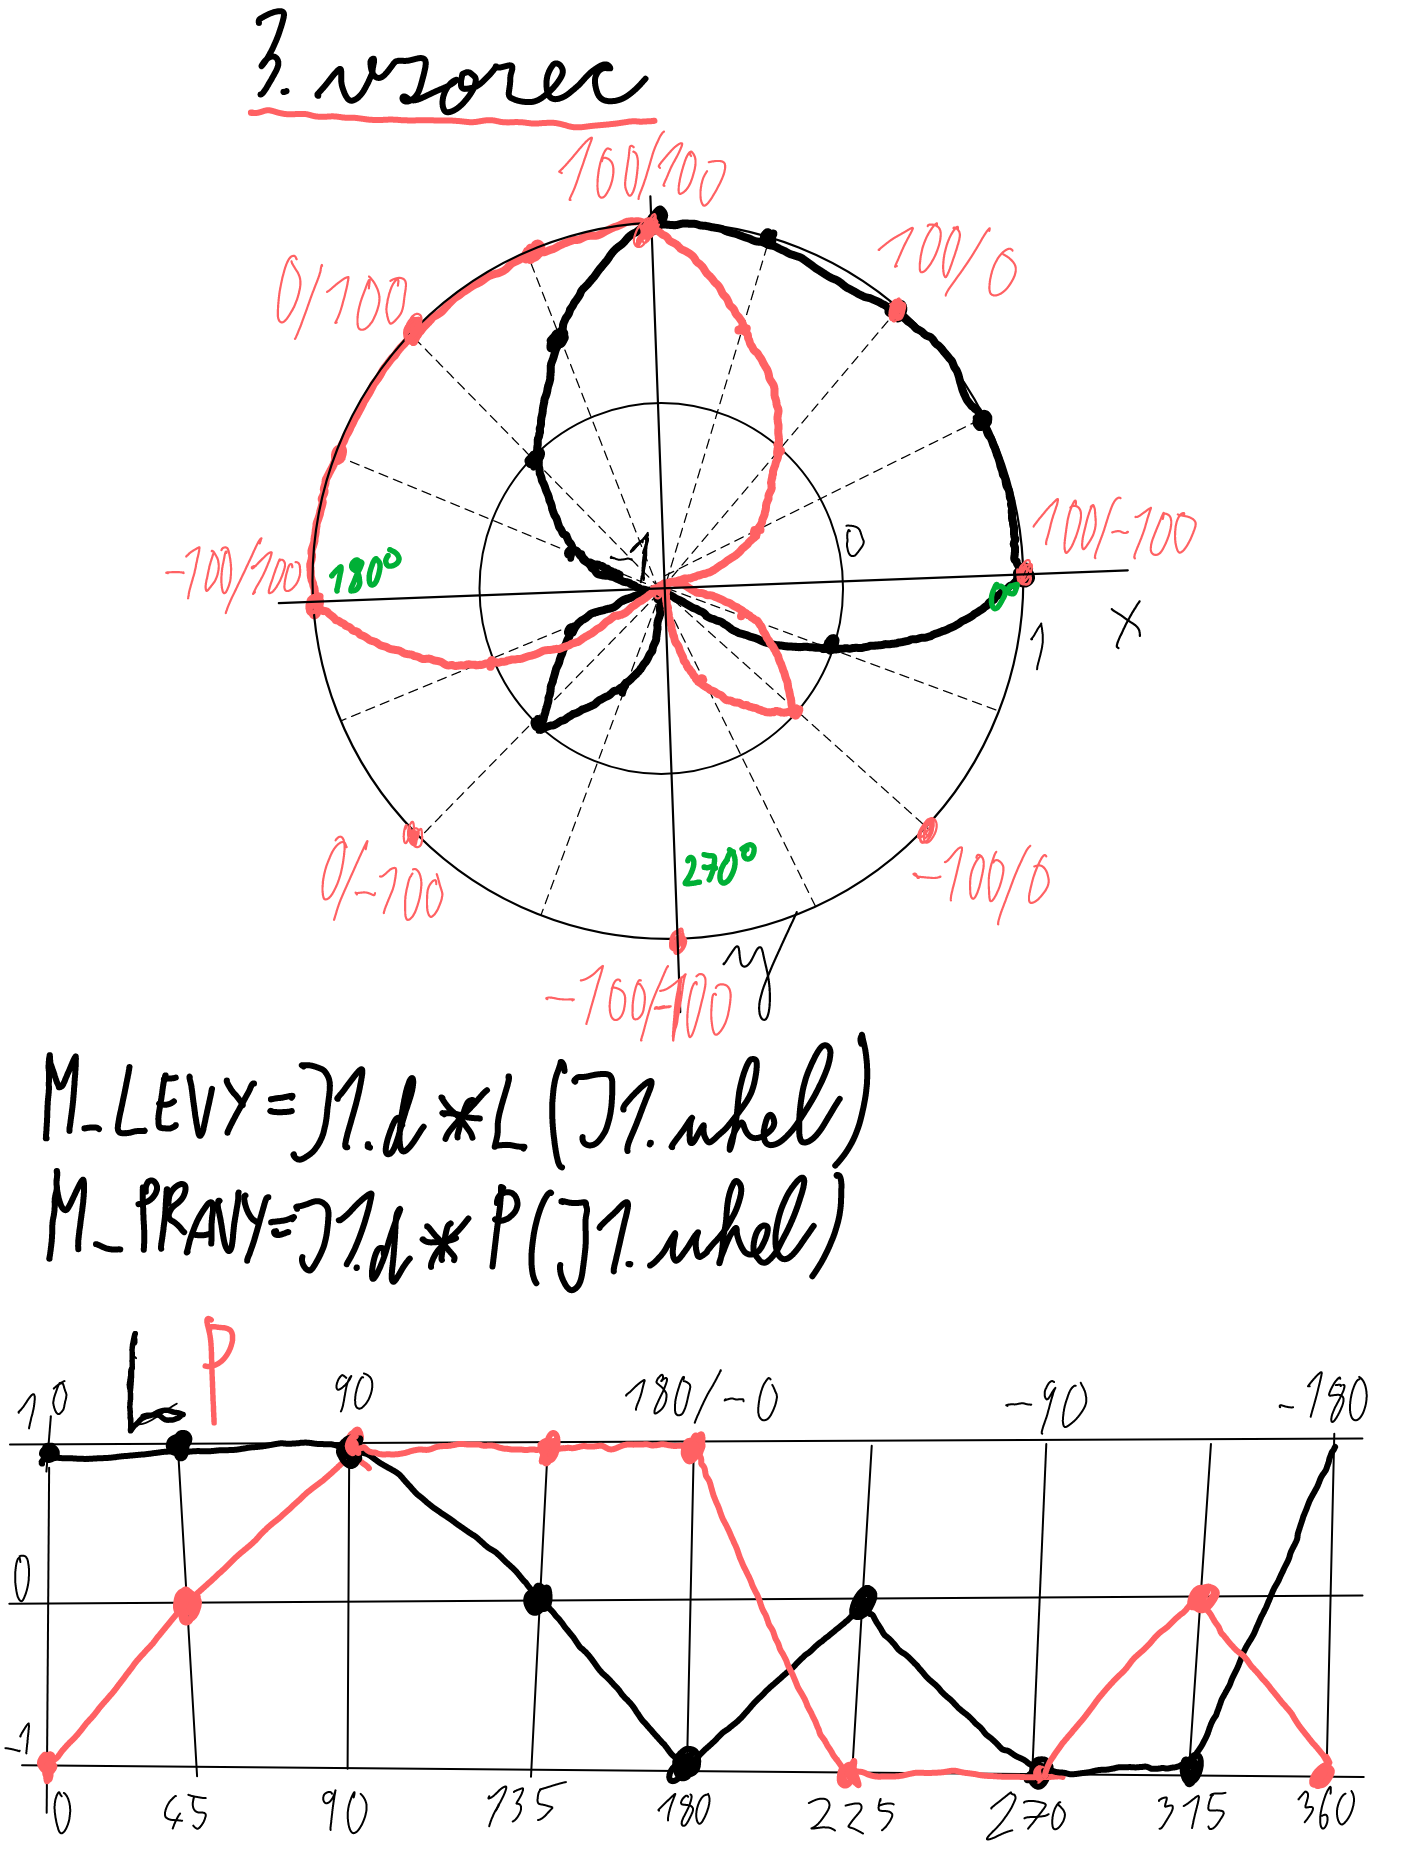 3. vsorec
100/100
0/100
100/0
-100/100
180°
-1
0
100/-100
0°
1
x
0/-100
270°
-100/0
y
-100/-100
M_LEVY=J1.d*L(J1.uhel)
M_PRAVY=J1.d*P(J1.uhel)
L P
1 0 90 180/-0 -90 -180
0
-1
0 45 90 135 180 225 270 315 360